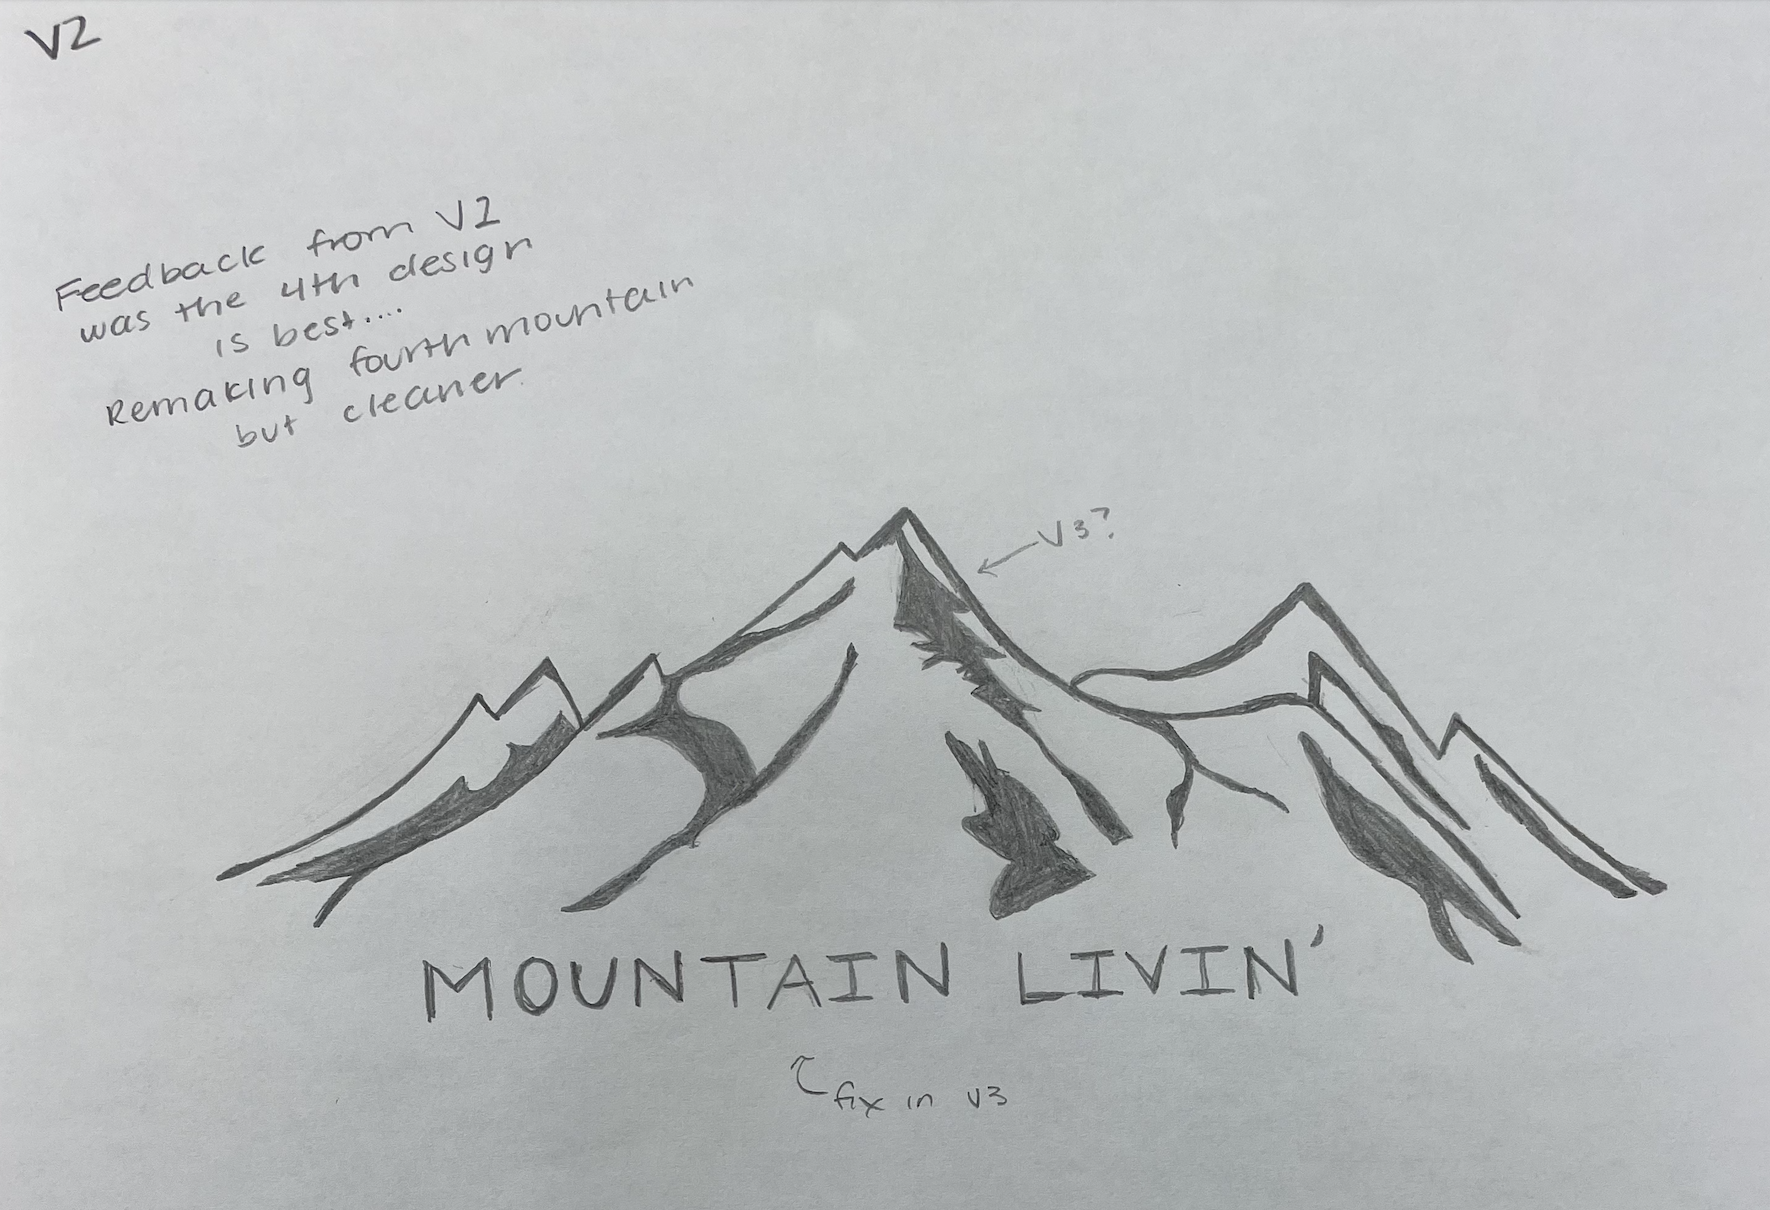 V2
Feedback from V1
was the 4th design
is best....
Remaking fourth mountain
but cleaner.
V3?
MOUNTAIN LIVIN'
fix in V3